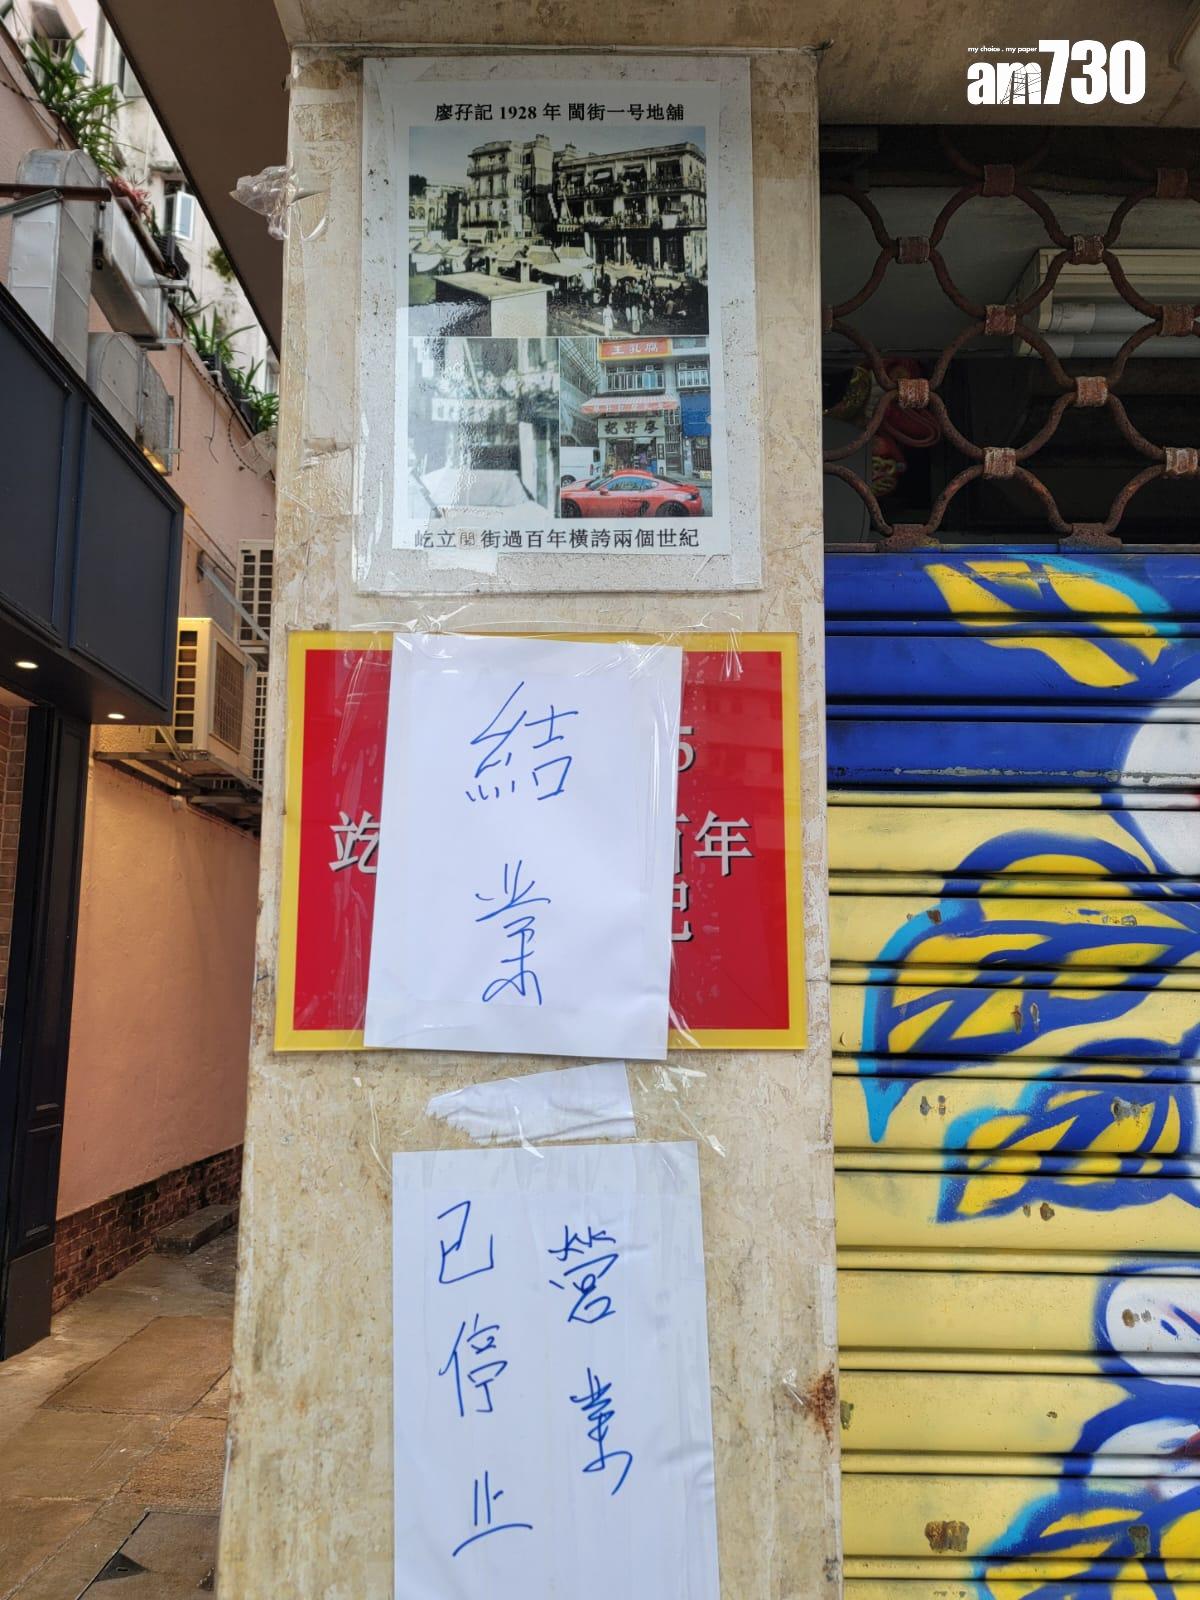 my choice . my paper
am730
廖孖記 1928 年 閩街一号地舖
王乳腐
記孖廖
屹立閩街過百年橫誇兩個世紀
結業
5
屹
年
營業
已停止